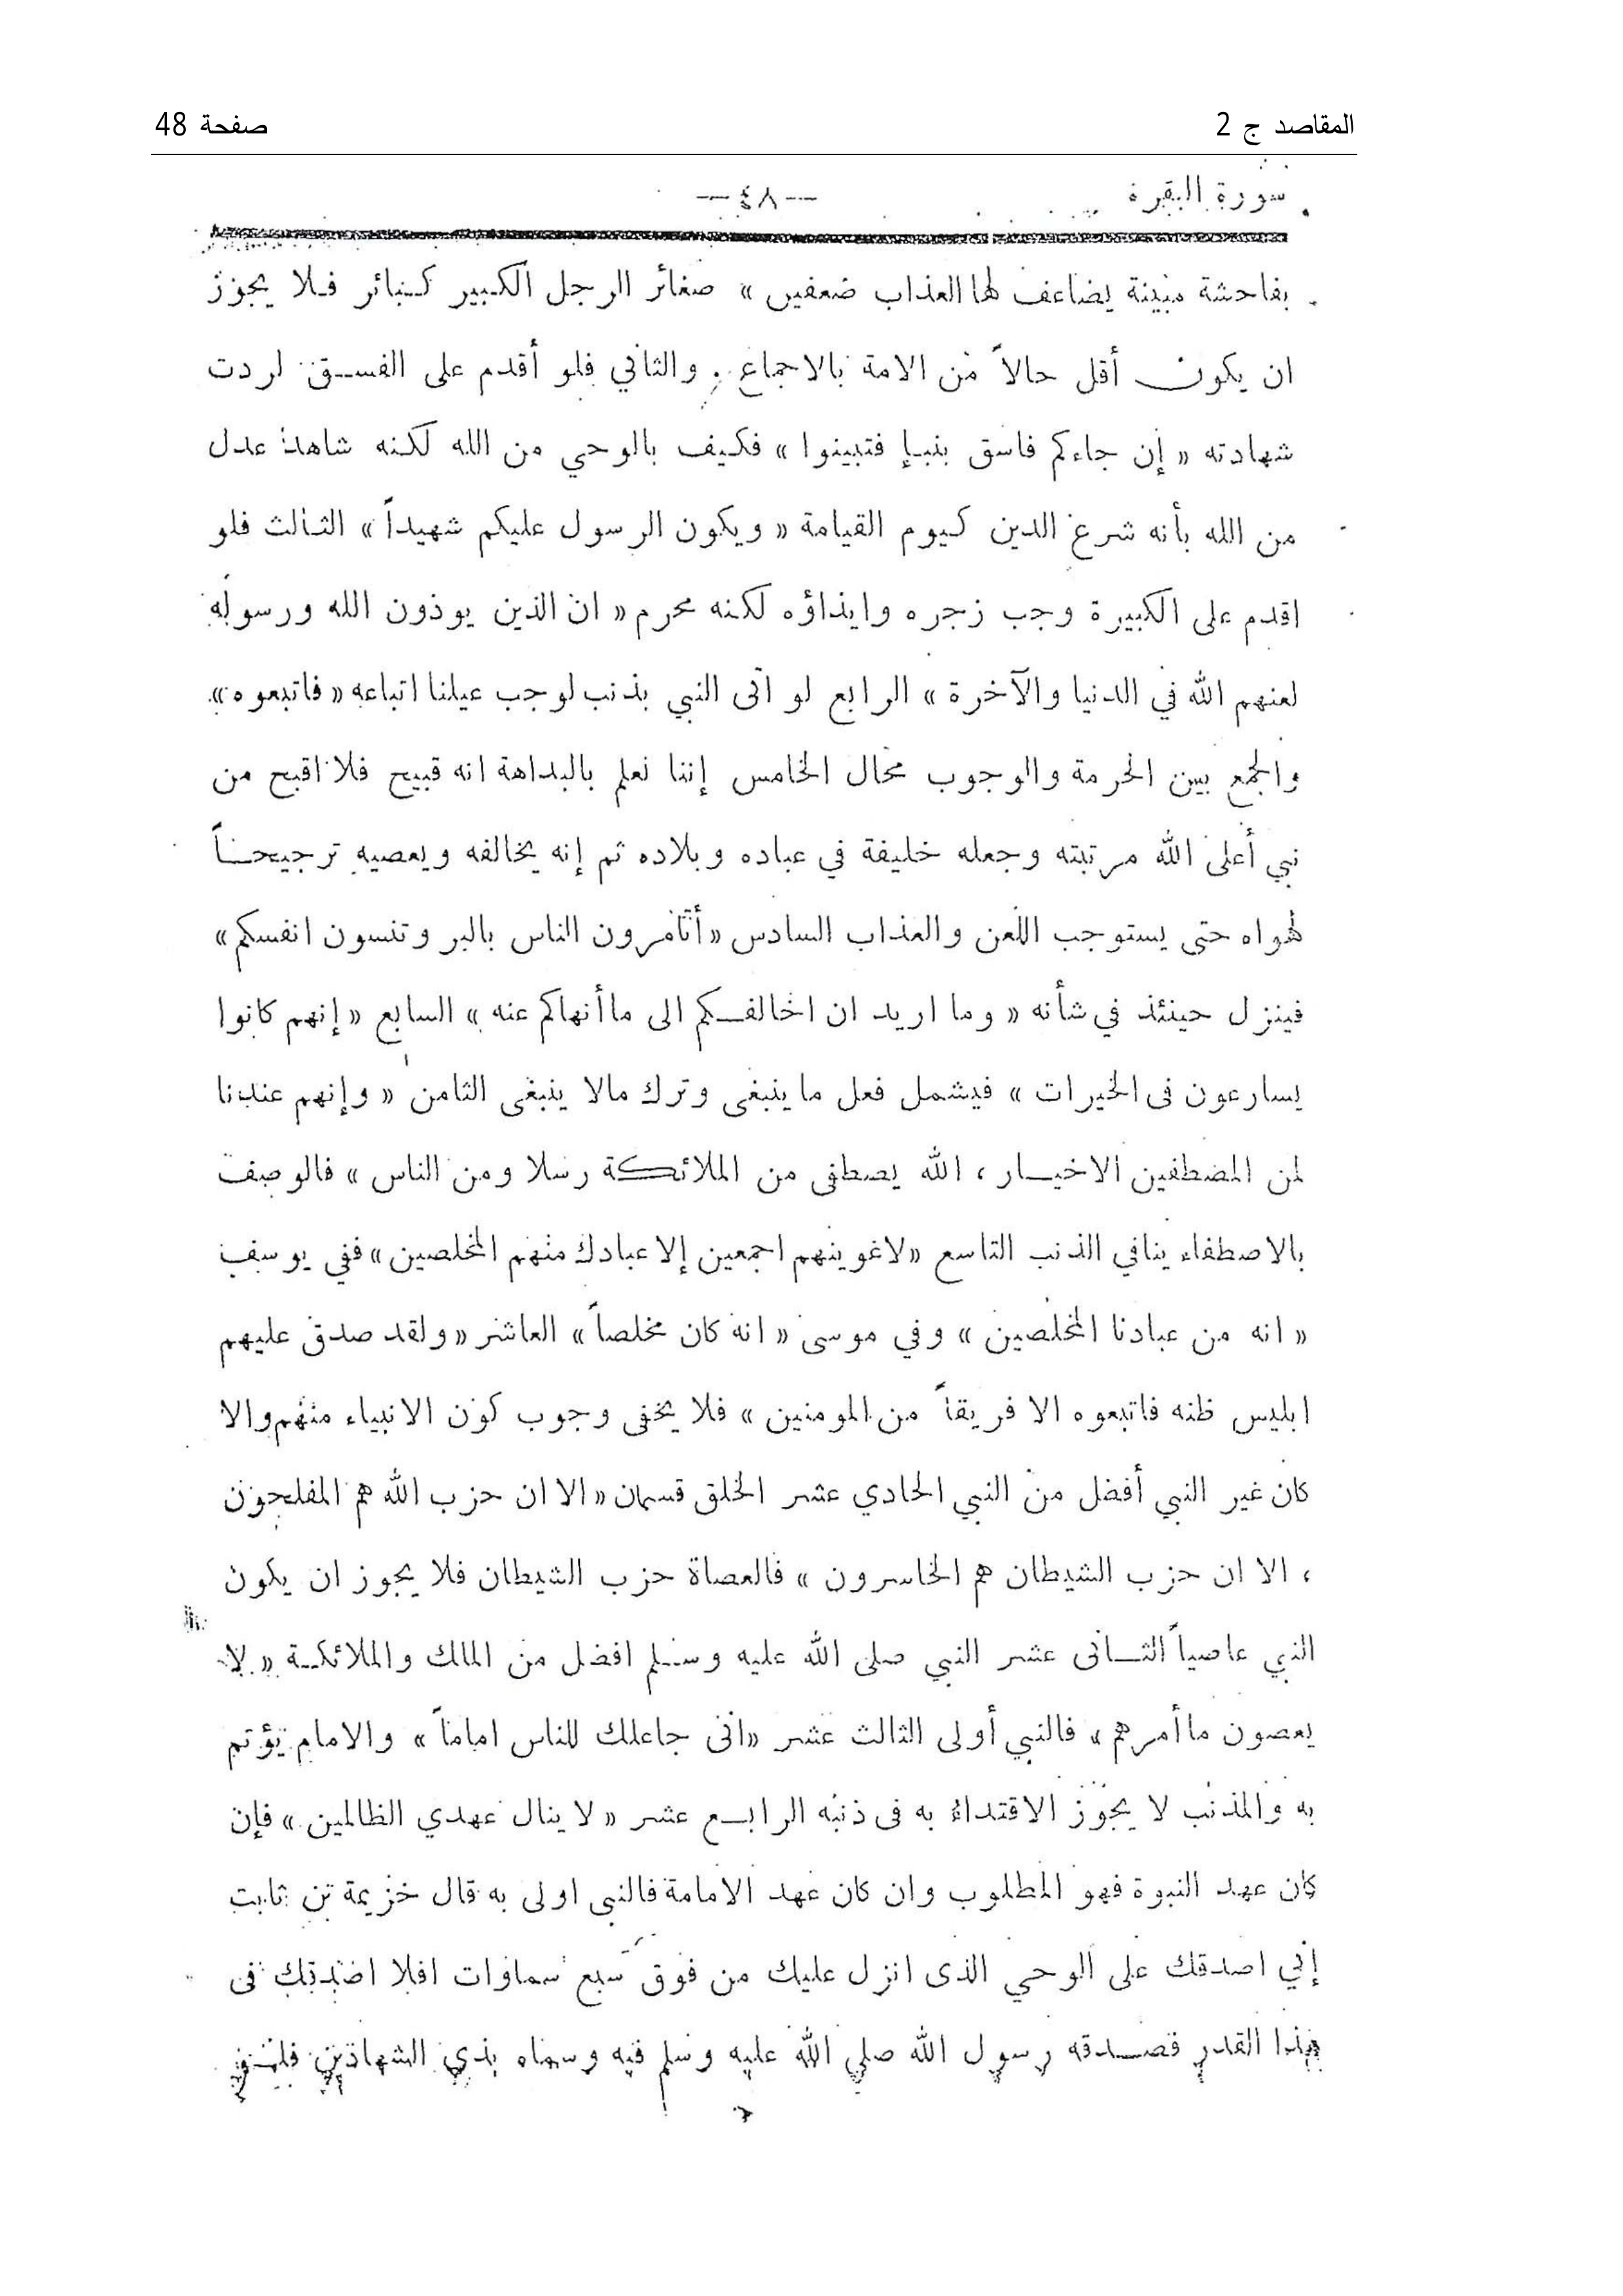 المقاصد ج 2
صفحة 48
سورة البقرة
--٤٨--
بفاحشة مبينة يضاعف لها العذاب ضعفين » صغائر الرجل الكبير كبائر فلا يجوز
ان يكون أقل حالاً من الامة بالاجماع . والثاني فلو أقدم على الفسق لردت
شهادته « إن جاءكم فاسق بنبإ فتبينوا » فكيف بالوحي من الله لكنه شاهد عدل
من الله بأنه شرع الدين كيوم القيامة « ويكون الرسول عليكم شهيداً » الثالث فلو
اقدم على الكبيرة وجب زجره وايذاؤه لكنه محرم « ان الذين يوذون الله ورسوله
لعنهم الله في الدنيا والآخرة » الرابع لو اتى النبي بذنب لوجب عيلنا اتباعه « فاتبعوه »
والجمع بين الحرمة والوجوب محال الخامس إننا نعلم بالبداهة انه قبيح فلا اقبح من
نبي أعلى الله مرتبته وجعله خليفة في عباده وبلاده ثم إنه يخالفه ويعصيه ترجيحاً
لهواه حتى يستوجب اللعن والعذاب السادس « أتأمرون الناس بالبر وتنسون انفسكم »
فينزل حينئذ في شأنه « وما اريد ان اخالفكم الى ماأنهاكم عنه » السابع « إنهم كانوا
يسارعون فى الخيرات » فيشمل فعل ماينبغى وترك مالا ينبغى الثامن « وإنهم عندنا
لمن المصطفين الاخيار ، الله يصطفى من الملائكة رسلا ومن الناس » فالوصف
بالاصطفاء ينافي الذنب التاسع « لاغوينهم اجمعين إلا عبادك منهم المخلصين » ففي يوسف
« انه من عبادنا المخلصين » وفي موسى « انه كان مخلصاً » العاشر « ولقد صدق عليهم
ابليس ظنه فاتبعوه الا فريقاً من المومنين » فلا يخفى وجوب كون الانبياء منهم والا
كان غير النبي أفضل من النبي الحادي عشر الخلق قسمان « الا ان حزب الله هم المفلحون
، الا ان حزب الشيطان هم الخاسرون » فالعصاة حزب الشيطان فلا يجوز ان يكون
النبي عاصياً الثانى عشر النبي صلى الله عليه وسلم افضل من الملك والملائكة « لا
يعصون ماأمرهم » فالنبي أولى الثالث عشر « انى جاعلك للناس اماماً » والامام يؤتم
به والمذنب لا يجوز الاقتداء به فى ذنبه الرابع عشر « لا ينال عهدي الظالمين » فإن
كان عهد النبوة فهو المطلوب وان كان عهد الامامة فالنبى اولى به قال خزيمة بن ثابت
إني اصدقك على الوحي الذى انزل عليك من فوق سبع سماوات افلا اصدقك فى
هذا القدر فصدقه رسول الله صلي الله عليه وسلم فيه وسماه بذي الشهادتين